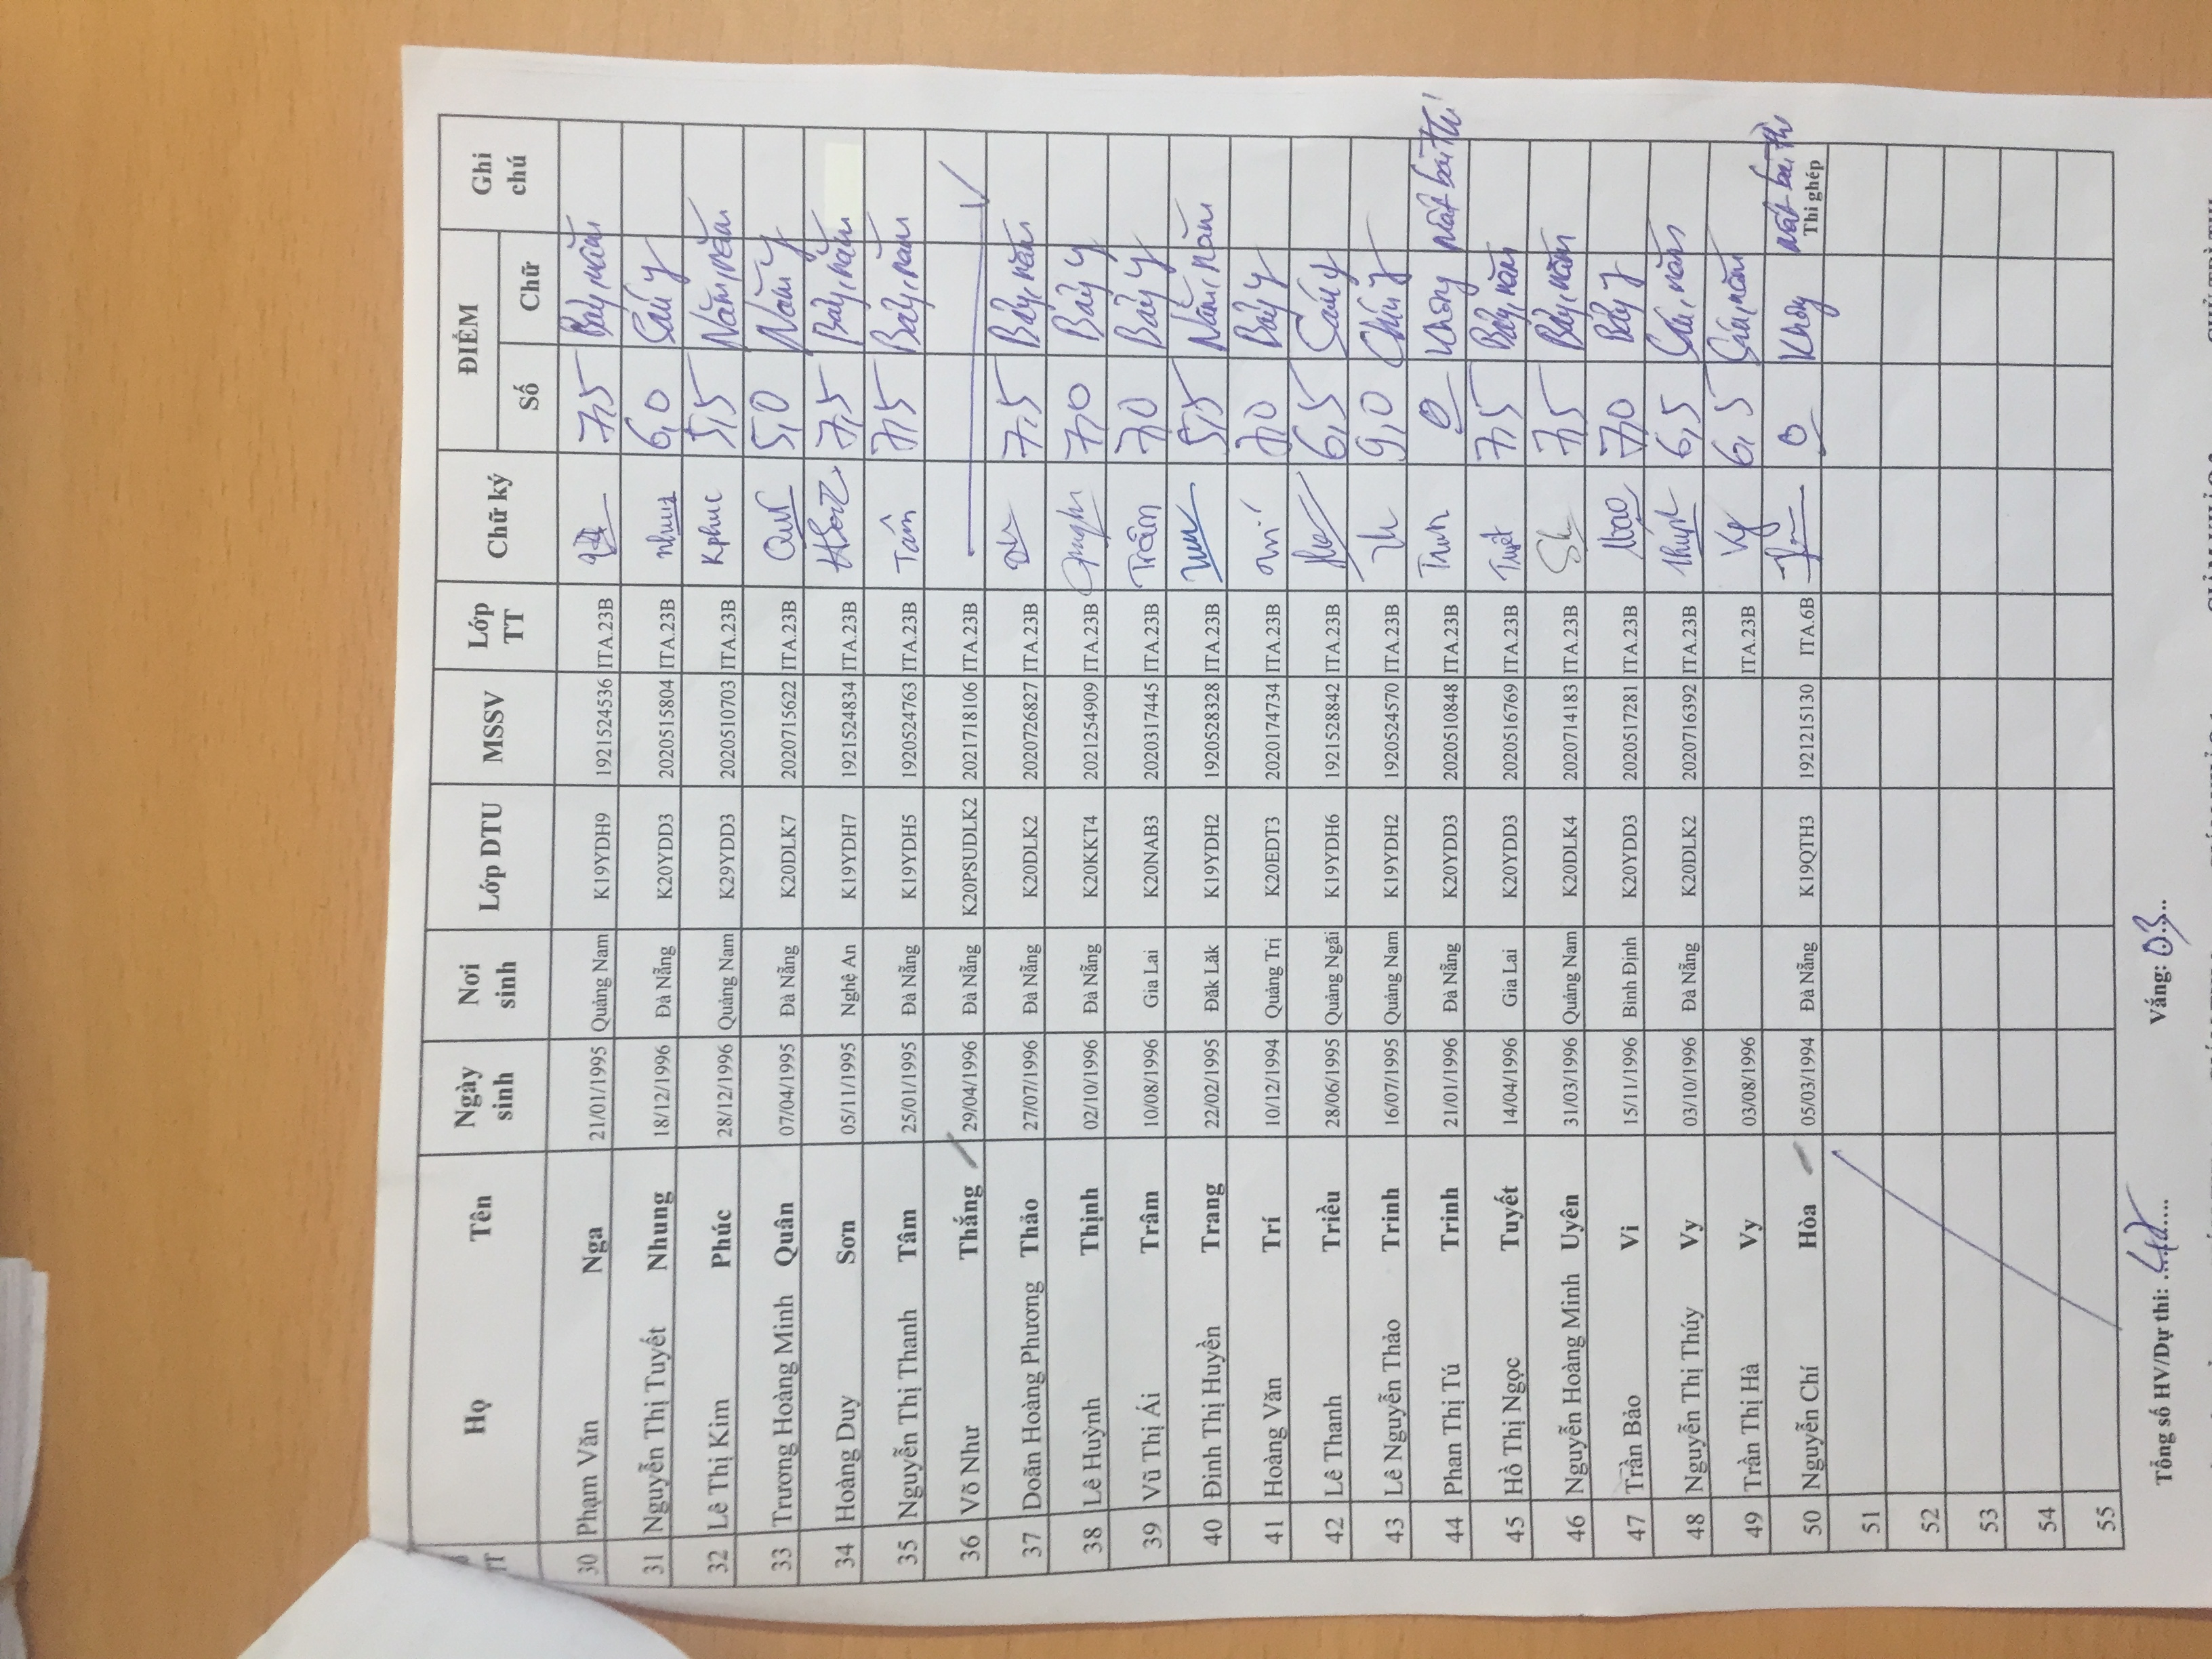 TT Họ Tên Ngày sinh Nơi sinh Lớp DTU MSSV Lớp TT Chữ ký ĐIỂM Ghi chú
Số Chữ
30 Phạm Văn Nga 21/01/1995 Quảng Nam K19YDH9 1921524536 ITA.23B 7,5 Bảy, năm
31 Nguyễn Thị Tuyết Nhung 18/12/1996 Đà Nẵng K20YDD3 2020515804 ITA.23B Nhung 6,0 Sáu y
32 Lê Thị Kim Phúc 28/12/1996 Quảng Nam K29YDD3 2020510703 ITA.23B Kphuc 5,5 Năm, năm
33 Trương Hoàng Minh Quân 07/04/1995 Đà Nẵng K20DLK7 2020715622 ITA.23B 5,0 Năm y
34 Hoàng Duy Sơn 05/11/1995 Nghệ An K19YDH7 1921524834 ITA.23B 7,5 Bảy, năm
35 Nguyễn Thị Thanh Tâm 25/01/1995 Đà Nẵng K19YDH5 1920524763 ITA.23B Tâm 7,5 Bảy, năm
36 Võ Như Thắng 29/04/1996 Đà Nẵng K20PSUDLK2 2021718106 ITA.23B V
37 Doãn Hoàng Phương Thảo 27/07/1996 Đà Nẵng K20DLK2 2020726827 ITA.23B 7,5 Bảy, năm
38 Lê Huỳnh Thịnh 02/10/1996 Đà Nẵng K20KKT4 2021254909 ITA.23B 7,0 Bảy y
39 Vũ Thị Ái Trâm 10/08/1996 Gia Lai K20NAB3 2020317445 ITA.23B Trâm 7,0 Bảy y
40 Đinh Thị Huyền Trang 22/02/1995 Đăk Lăk K19YDH2 1920528328 ITA.23B 5,5 Năm, năm
41 Hoàng Văn Trí 10/12/1994 Quảng Trị K20EDT3 2020174734 ITA.23B Trí 7,0 Bảy y
42 Lê Thanh Triều 28/06/1995 Quảng Ngãi K19YDH6 1921528842 ITA.23B 6,5 Sáu y
43 Lê Nguyễn Thảo Trinh 16/07/1995 Quảng Nam K19YDH2 1920524570 ITA.23B 9,0 Chín y
44 Phan Thị Tú Trinh 21/01/1996 Đà Nẵng K20YDD3 2020510848 ITA.23B Trinh 0 Không nát bài thi
45 Hồ Thị Ngọc Tuyết 14/04/1996 Gia Lai K20YDD3 2020516769 ITA.23B Tuyết 7,5 Bảy, năm
46 Nguyễn Hoàng Minh Uyên 31/03/1996 Quảng Nam K20DLK4 2020714183 ITA.23B 7,5 Bảy, năm
47 Trần Bảo Vi 15/11/1996 Bình Định K20YDD3 2020517281 ITA.23B 7,0 Bảy y
48 Nguyễn Thị Thúy Vy 03/10/1996 Đà Nẵng K20DLK2 2020716392 ITA.23B 6,5 Sáu, năm
49 Trần Thị Hà Vy 03/08/1996 ITA.23B Vy 6,5 Sáu, năm
50 Nguyễn Chí Hòa 05/03/1994 Đà Nẵng K19QTH3 1921215130 ITA.6B 0 Không nát bài thi Thi ghép
51
52
53
54
55
Tổng số HV/Dự thi: 47 Vắng: 03